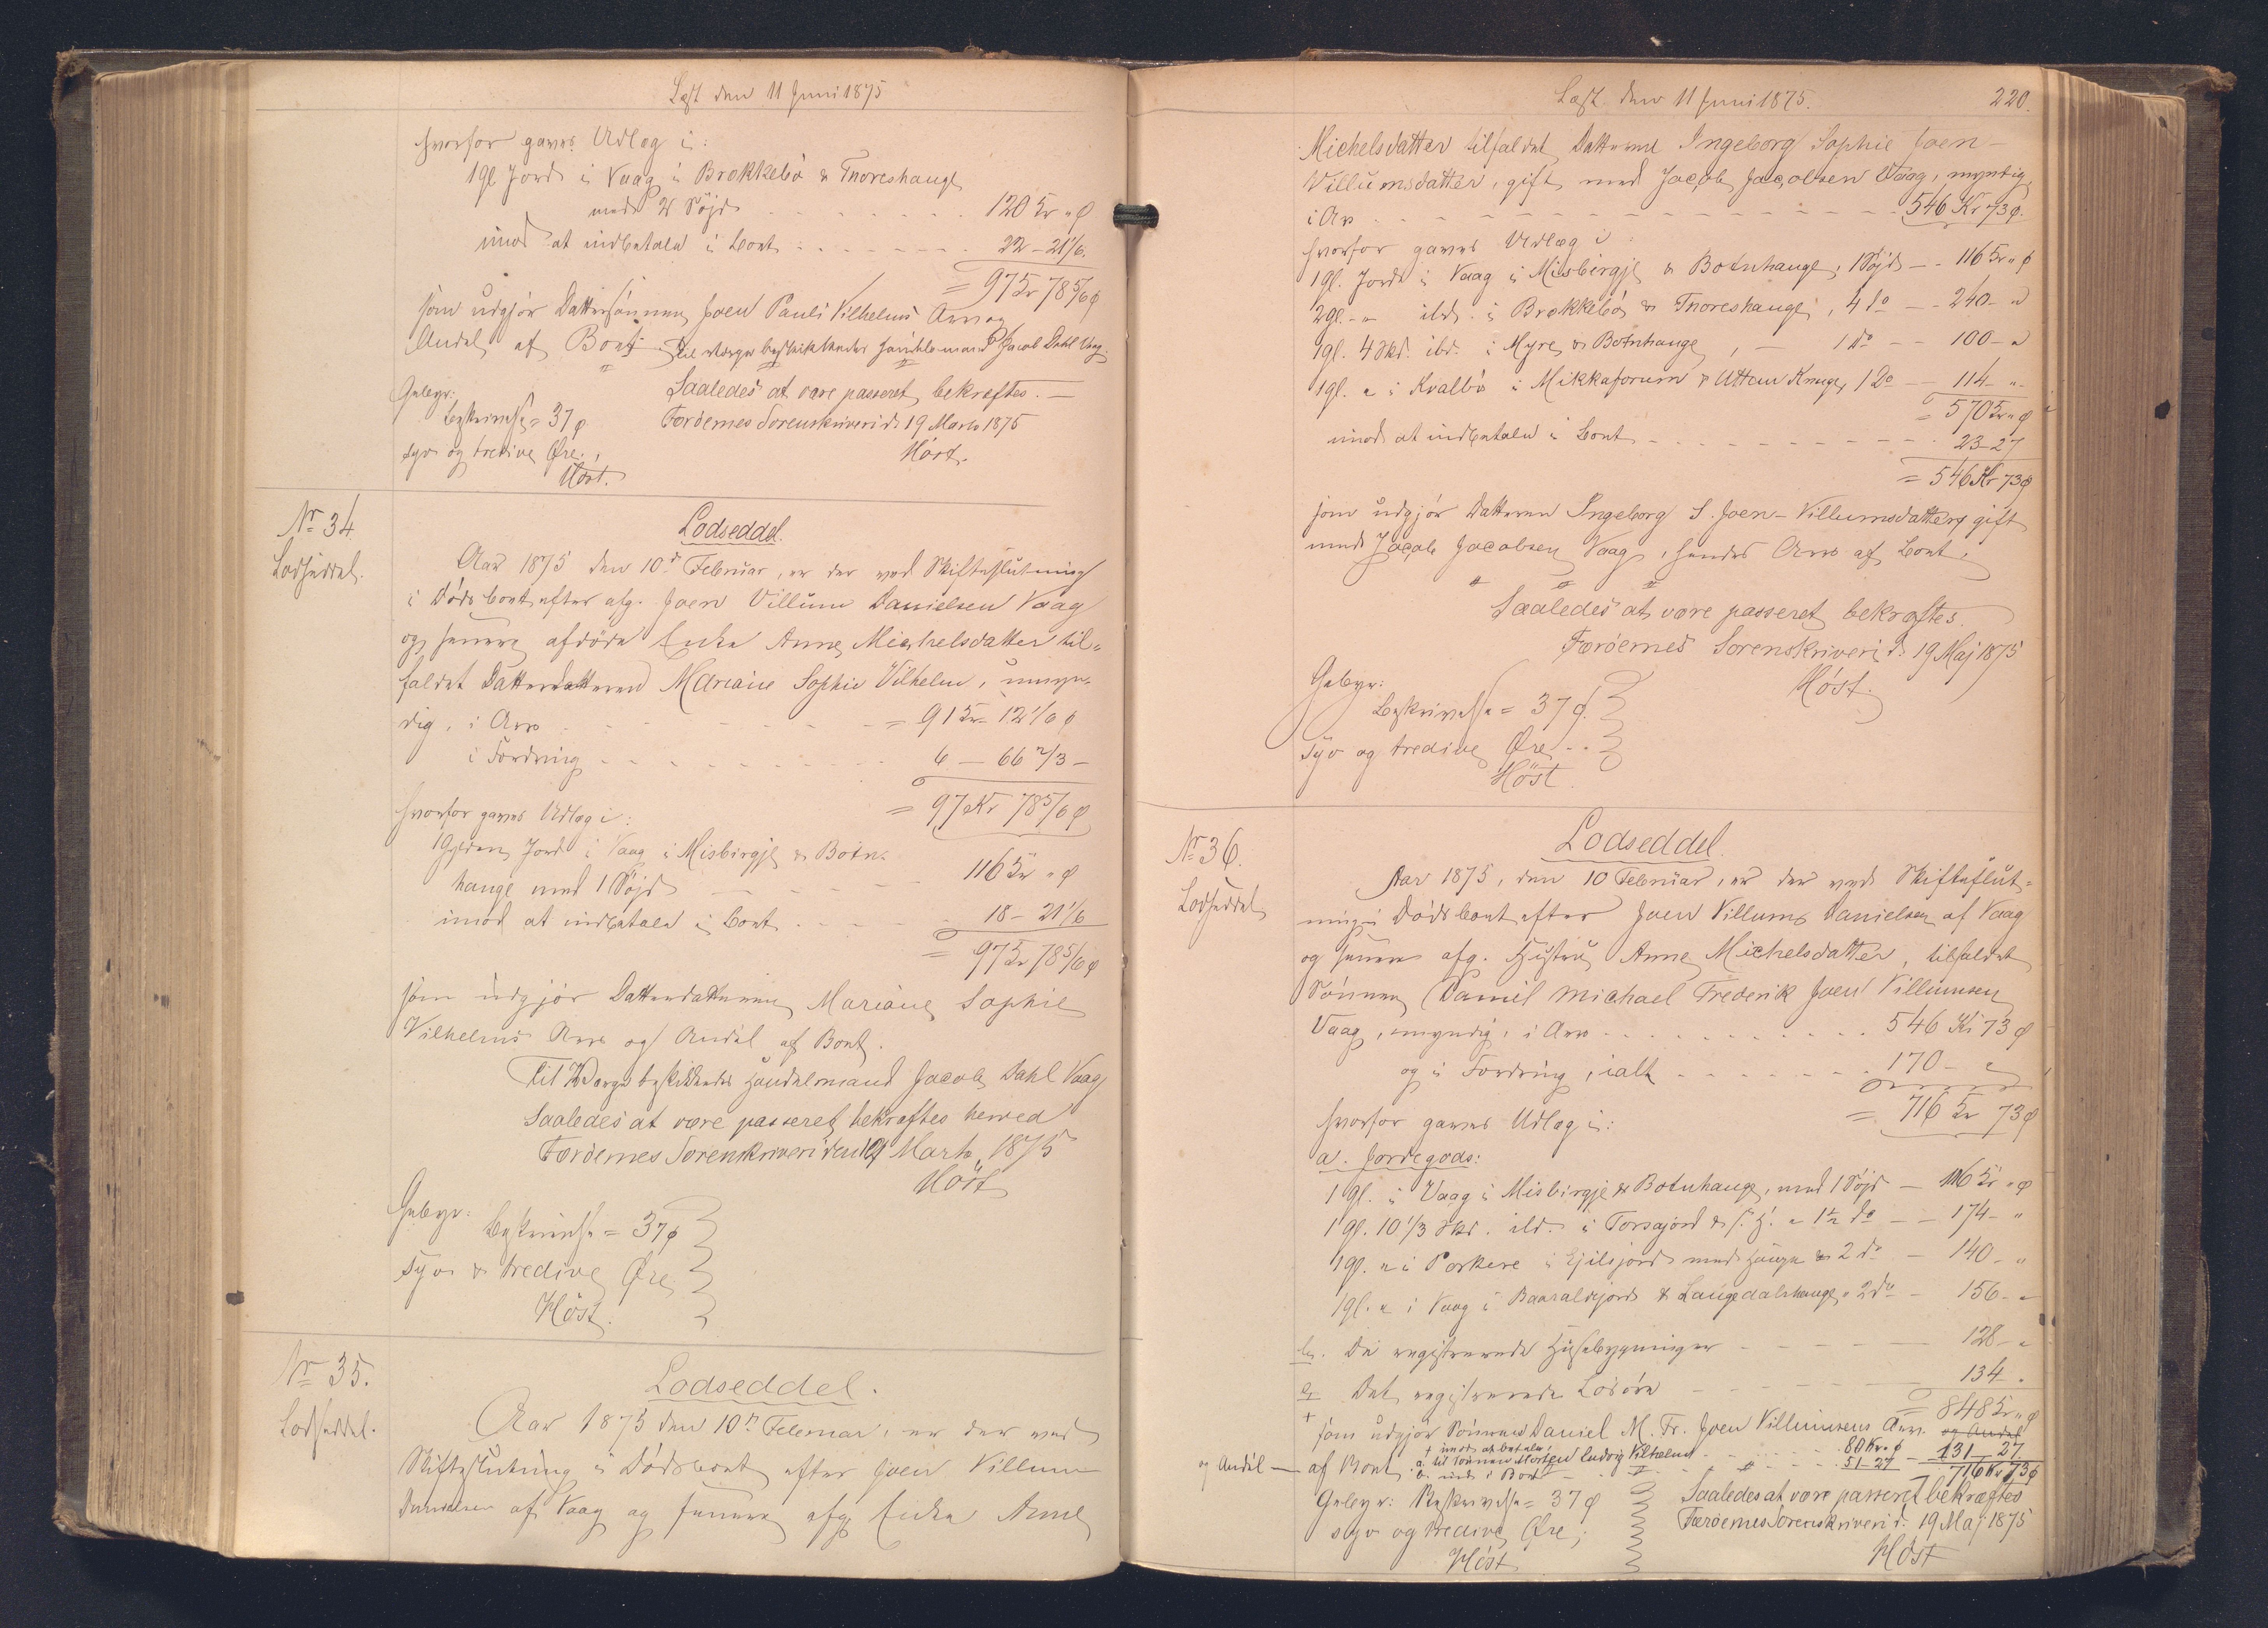 Læst den 11 Juni 1875
hvorfor gaves Udlæg i:
1 gl Jord i Vaag i Brøkkebø & Thoreshauge
med 2 Søjd 120 Kr „ ø
imod at indbetale i Boet 22 – 21 1/6
= 97 Kr 78 5/6 ø
som udgjør Dattersønnen Joen Pauli Vilhelms Arv og
Andel af Boet. Til Værge beskikkedes Handelsmand Jacob Dahl Vaag.
Saaledes at være passeret, bekræftes. –
Gebyr:
Beskrivelse = 37 ø
Færøernes Sorenskriveri d. 19 Marts 1875
syv og tredive Øre.,
Høst.
Høst.
Nr 34.
Lodseddel.
Lodseddel.
Aar 1875 den 10de Februar, er der ved Skifteslutning
i Dødsboet efter afg. Joen Villum Danielsen Vaag
og senere afdøde Enke Anne Michelsdatter til-
faldet Datterdatteren Mariane Sophie Vilhelm, umyn-
dig, i Arv = 91 Kr 12 1/6 ø
i Fordring 6 – 66 2/3 –
hvorfor gaves Udlæg i: = 97 Kr 78 5/6 ø
1 Gylden Jord i Vaag i Misbirgje & Botn-
hauge med 1 Søjd 116 Kr „ ø
imod at indbetale i Boet 18 – 21 1/6
= 97 Kr 78 5/6 ø
som udgjør Datterdatteren Mariane Sophie
Vilhelms Arv og Andel af Boet.
Til Værge beskikkedes Handelsmand Jacob Dahl Vaag
Saaledes at være passeret bekræftes herved
Færøernes Sorenskriveri den 19 Marts 1875
Høst
Gebyr:
Beskrivelse = 37 ø
syv & tredive Øre
Høst.
Nr 35.
Lodseddel.
Lodseddel.
Aar 1875 den 10de Februar, er der ved
Skifteslutning i Dødsboet efter Joen Villum
Danielsen af Vaag og senere afg. Enke Anne
Læst den 11 Juni 1875.
220.
Michelsdatter tilfaldet Datteren Ingeborg Sophie Joen-
Villumsdatter, gift med Jacob Jacobsen Vaag, myndig,
i Arv 546 Kr 73 ø.
hvorfor gaves Udlæg i
1 gl. Jord i Vaag i Misbirgje & Botnhauge, 1 Søjd – 116 Kr „ ø
2 gl. – „ ibd. i Brøkkebø & Thoreshauge, 4 do – 240 – „
1 gl. 4 Skd. ibd. i Myre & Botnhauge, – 1 do – 100 – „
1 gl. „ i Kvalbø i Mikkaforum & Uttan Knuge, 1 do – 114 – „
= 570 Kr „ ø
imod at indbetale i Boet 23 – 27
= 546 Kr 73 ø
som udgjør Datteren Ingeborg S. Joen-Villumsdatters gift
med Jacob Jacobsen Vaag, hendes Arv af Boet.
Saaledes at være passeret bekræftes.
Færøernes Sorenskriveri d. 19 Maj 1875
Høst.
Gebyr:
Beskrivelse = 37 ø.
syv og tredive Øre
Høst.
Nr 36.
Lodseddel
Lodseddel.
Aar 1875, den 10 Februar, er der ved Skifteslut-
ning i Dødsboet efter Joen Villums Danielsen af Vaag
og senere afg. Hustru Anne Michelsdatter, tilfaldet
Sønnen Daniel Michael Frederik Joen Villumsen
Vaag, myndig, i Arv 546 Kr 73 ø
og i Fordring, ialt 170 – „
= 716 Kr 73 ø
hvorfor gaves Udlæg i:
a. Jordegods:
1 gl. i Vaag i Misbirgje & Botnhauge, med 1 Søjd – 116 Kr „ ø
1 gl. 10 1/3 Skd. ibd. i Torsajord & S. H. „ 1 1/2 do – 174 – „
1 gl. „ i Porkere i Ejilsjord med Hauge & 2 do – 140 – „
1 gl. „ i Vaag i Baaraldsjord & Laugedalshauge „ 2 do – 156 – „
b. De registrerede Husebygninger 128 – „
c. Det registrerede Løsøre 134 „
= 848 Kr „ ø
+ som udgjør Sønnen Daniel M. Fr. Joen Villumsens Arv og Andel
+ imod at betale:
a. til Sønnen Morten Ludvig Vilhelm 80 Kr „ ø – 131 – 27
og Andel – af Boet.
b. inds i Boet 51 – 27
716 Kr 73 ø
Gebyr: Beskrivelse = 37 ø
Saaledes at være passeret bekræftes
syv og tredive Øre;
Færøernes Sorenskriveri d. 19 Maj 1875
Høst
Høst